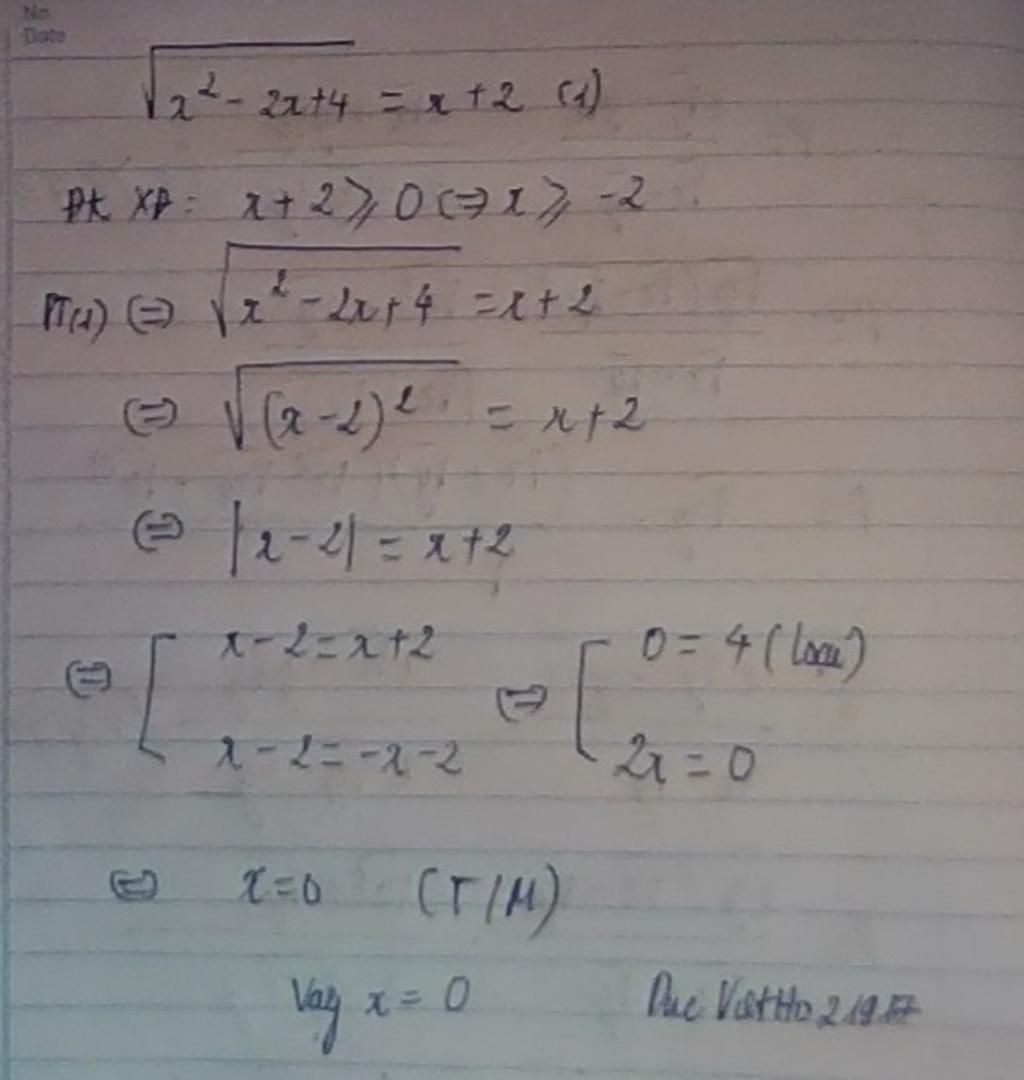 No
Date
√(x² - 2x+4) = x + 2 (1)
ĐK XĐ: x + 2 ⩾ 0 ⇔ x ⩾ -2
PT(1) ⇔ √(x² - 2x + 4) = x + 2
⇔ √((x - 2)²) = x + 2
⇔ |x - 2| = x + 2
⇔ [ x - 2 = x + 2 ⇔ [ 0 = 4 (loại)
x - 2 = -x - 2 2x = 0
⇔ x = 0 (T/M)
Vậy x = 0 Duc VietHo